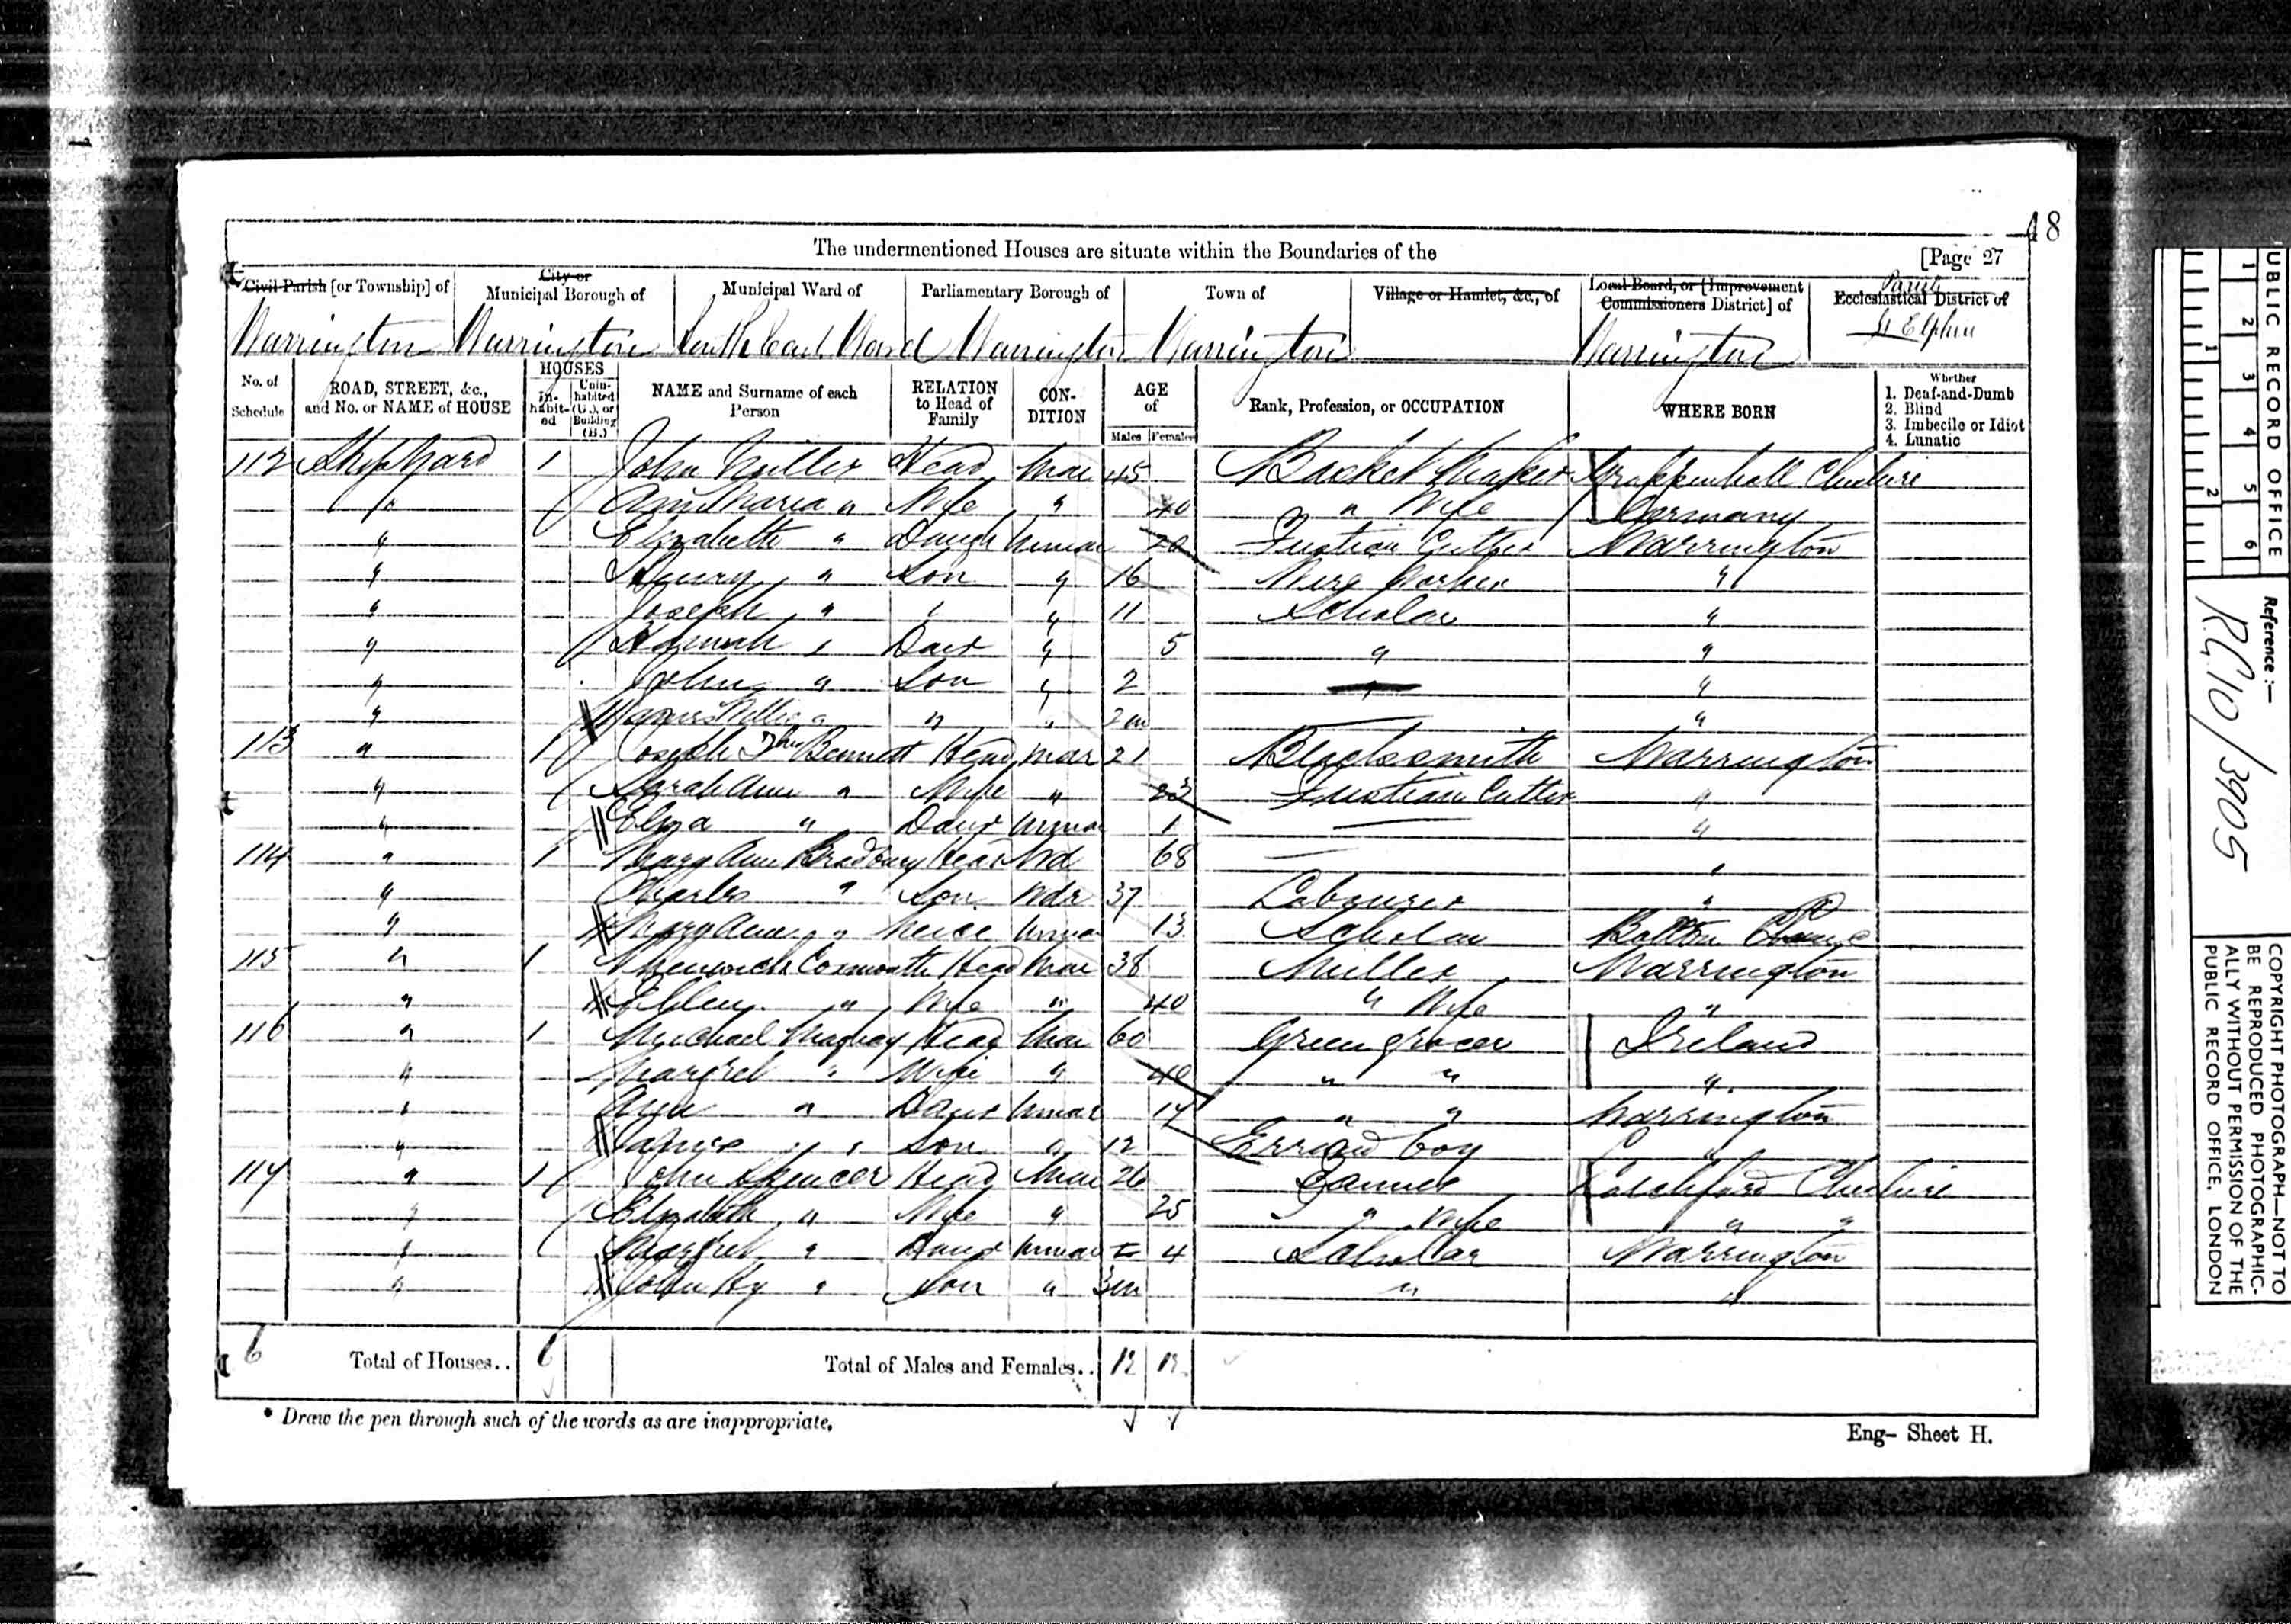 48
The undermentioned Houses are situate within the Boundaries of the [Page 27
Civil Parish [or Township] of City or Municipal Borough of Municipal Ward of Parliamentary Borough of Town of Village or Hamlet, &c., of Local Board, or [Improvement Commissioners District] of Parish Ecclesiastical District of
Warrington Warrington South East Ward Warrington Warrington Warrington St Elphin
No. of Schedule ROAD, STREET, &c., and No. or NAME of HOUSE HOUSES In-habit-ed Unin-habited (U.), or Building (B.) NAME and Surname of each Person RELATION to Head of Family CON-DITION AGE of Males Females Rank, Profession, or OCCUPATION WHERE BORN Whether 1. Deaf-and-Dumb 2. Blind 3. Imbecile or Idiot 4. Lunatic
112 Ship Yard 1 John Head Mar 45 Basket Maker Grappenhall Cheshire
" Ann Maria " Wife " 40 " Wife Germany
" Elizabeth " Daugh Unmar 20 Fustian Cutter Warrington
" Henry " Son " 16 Wire Worker "
" Joseph " " " 11 Scholar "
" Hannah " Daur " 5 " "
" John " Son " 2 "
" James " " " 2m "
113 " 1 Joseph Thos Bennett Head Mar 21 Blacksmith Warrington
" Sarah Ann " Wife " 23 Fustian Cutter "
" Eliza " Daur Unmar 1 "
114 " 1 Mary Ann Bradbury Head Wd 68 "
" Charles " Son Wdr 37 Labourer "
" Mary Ann " Neice Unmar 13 Scholar Bolton
115 " 1 Head Mar 38 Miller Warrington
" Ellen " Wife " 40 " Wife "
116 " 1 Michael Head Mar 60 Green grocer Ireland
" Margret " Wife " 40 " " "
" Ann " Daur Unmar 17 " " Warrington
" James " Son " 12 Errand boy "
117 " 1 John Spencer Head Mar 26 Tanner Latchford Cheshire
" Elizabeth " Wife " 25 " Wife " "
" Margret " Daur Unmar 4 Scholar Warrington
" John Hy " Son " 3m " "
6 Total of Houses.. 6 Total of Males and Females.. 12 12
* Draw the pen through such of the words as are inappropriate.
Eng- Sheet H.
PUBLIC RECORD OFFICE
1 2 3 4 5 6
1 2
Reference :-
RG 10/3905
COPYRIGHT PHOTOGRAPH—NOT TO
BE REPRODUCED PHOTOGRAPHIC-
ALLY WITHOUT PERMISSION OF THE
PUBLIC RECORD OFFICE, LONDON